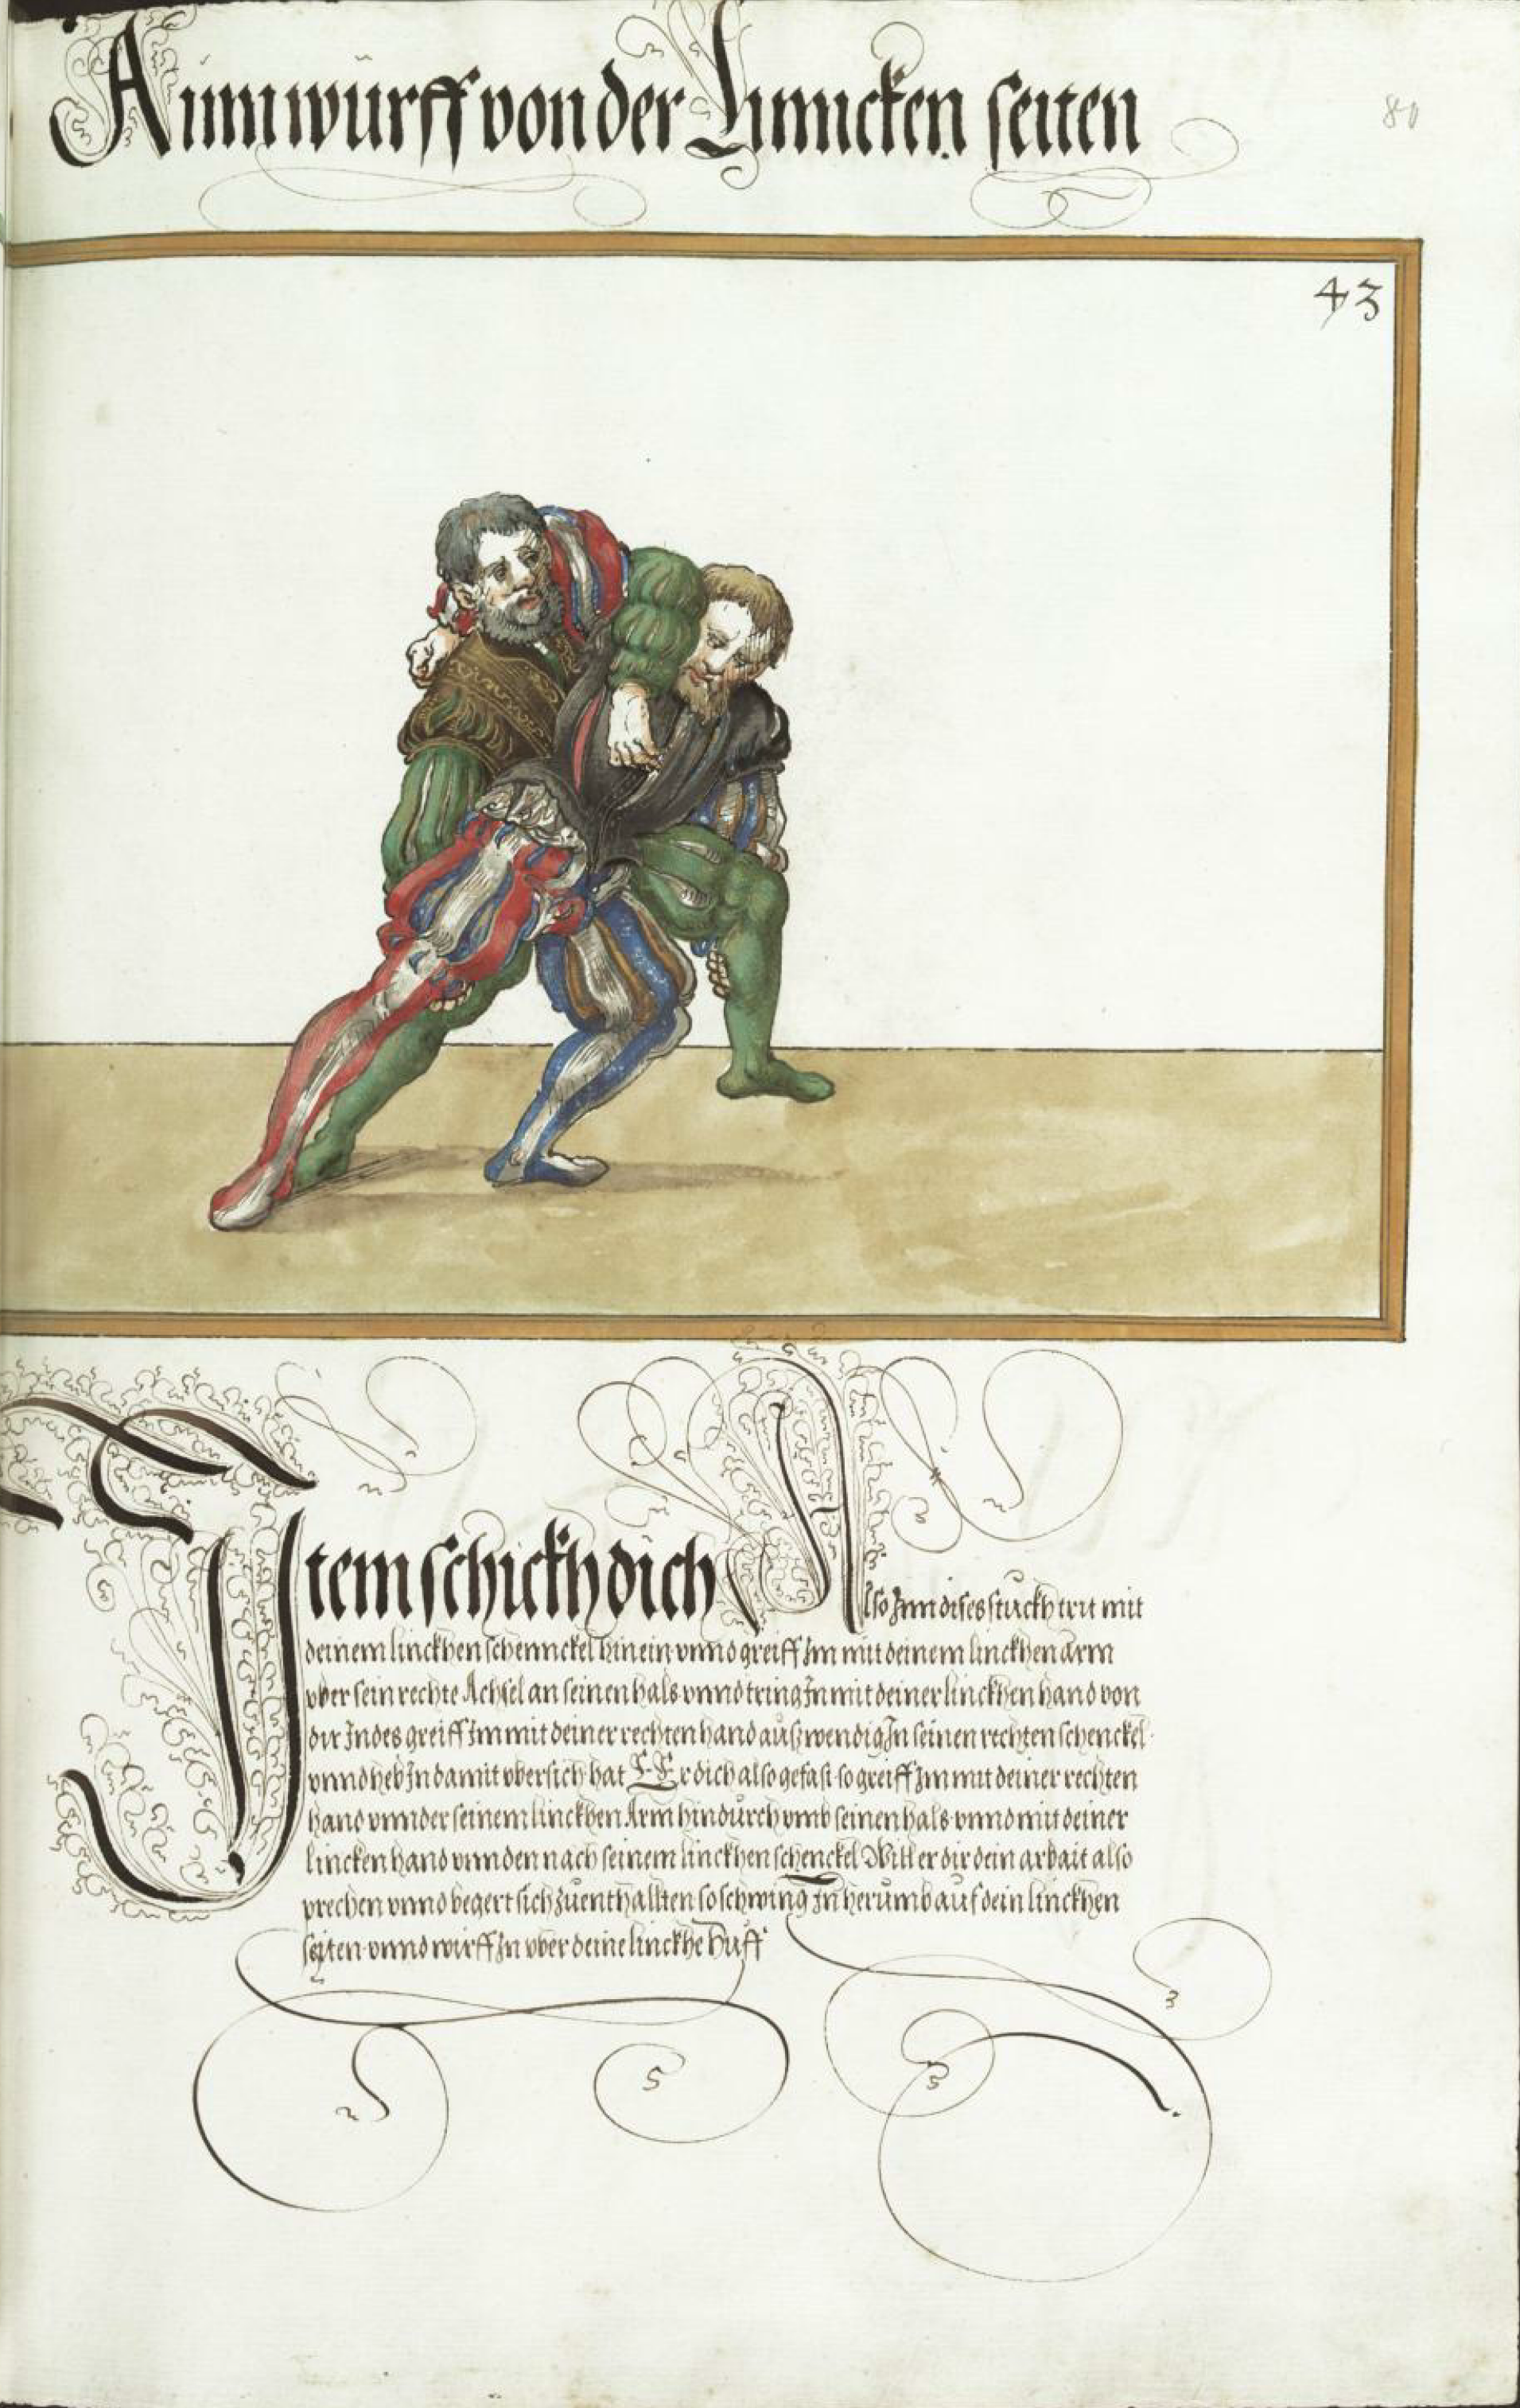 Ainn würff von der Linncken seiten
80
43
Item schickh dich Also Inn dises stuckh trit mit
deinem linckhen schennckel hinein vnnd greiff Im mit deinem linckhen arm
vber sein rechte Achsel an seinen hals vnnd tring In mit deiner linckhen hand von
dir Indes greiff Im mit deiner rechten hand außwendig In seinen rechten schenckel
vnnd heb In damit vbersich hat Er dich also gefast so greiff Im mit deiner rechten
hand vnnder seinem linckhen Arm hindurch vmb seinen hals vnnd mit deiner
lincken hand vnnden nach seinem linckhen schenckel Will er dir dein arbait also
prechen vnnd begert sich zuenthallten so schwing In herumb auf dein linckhen
seyten vnnd wirff In vber deine linckhe Huff